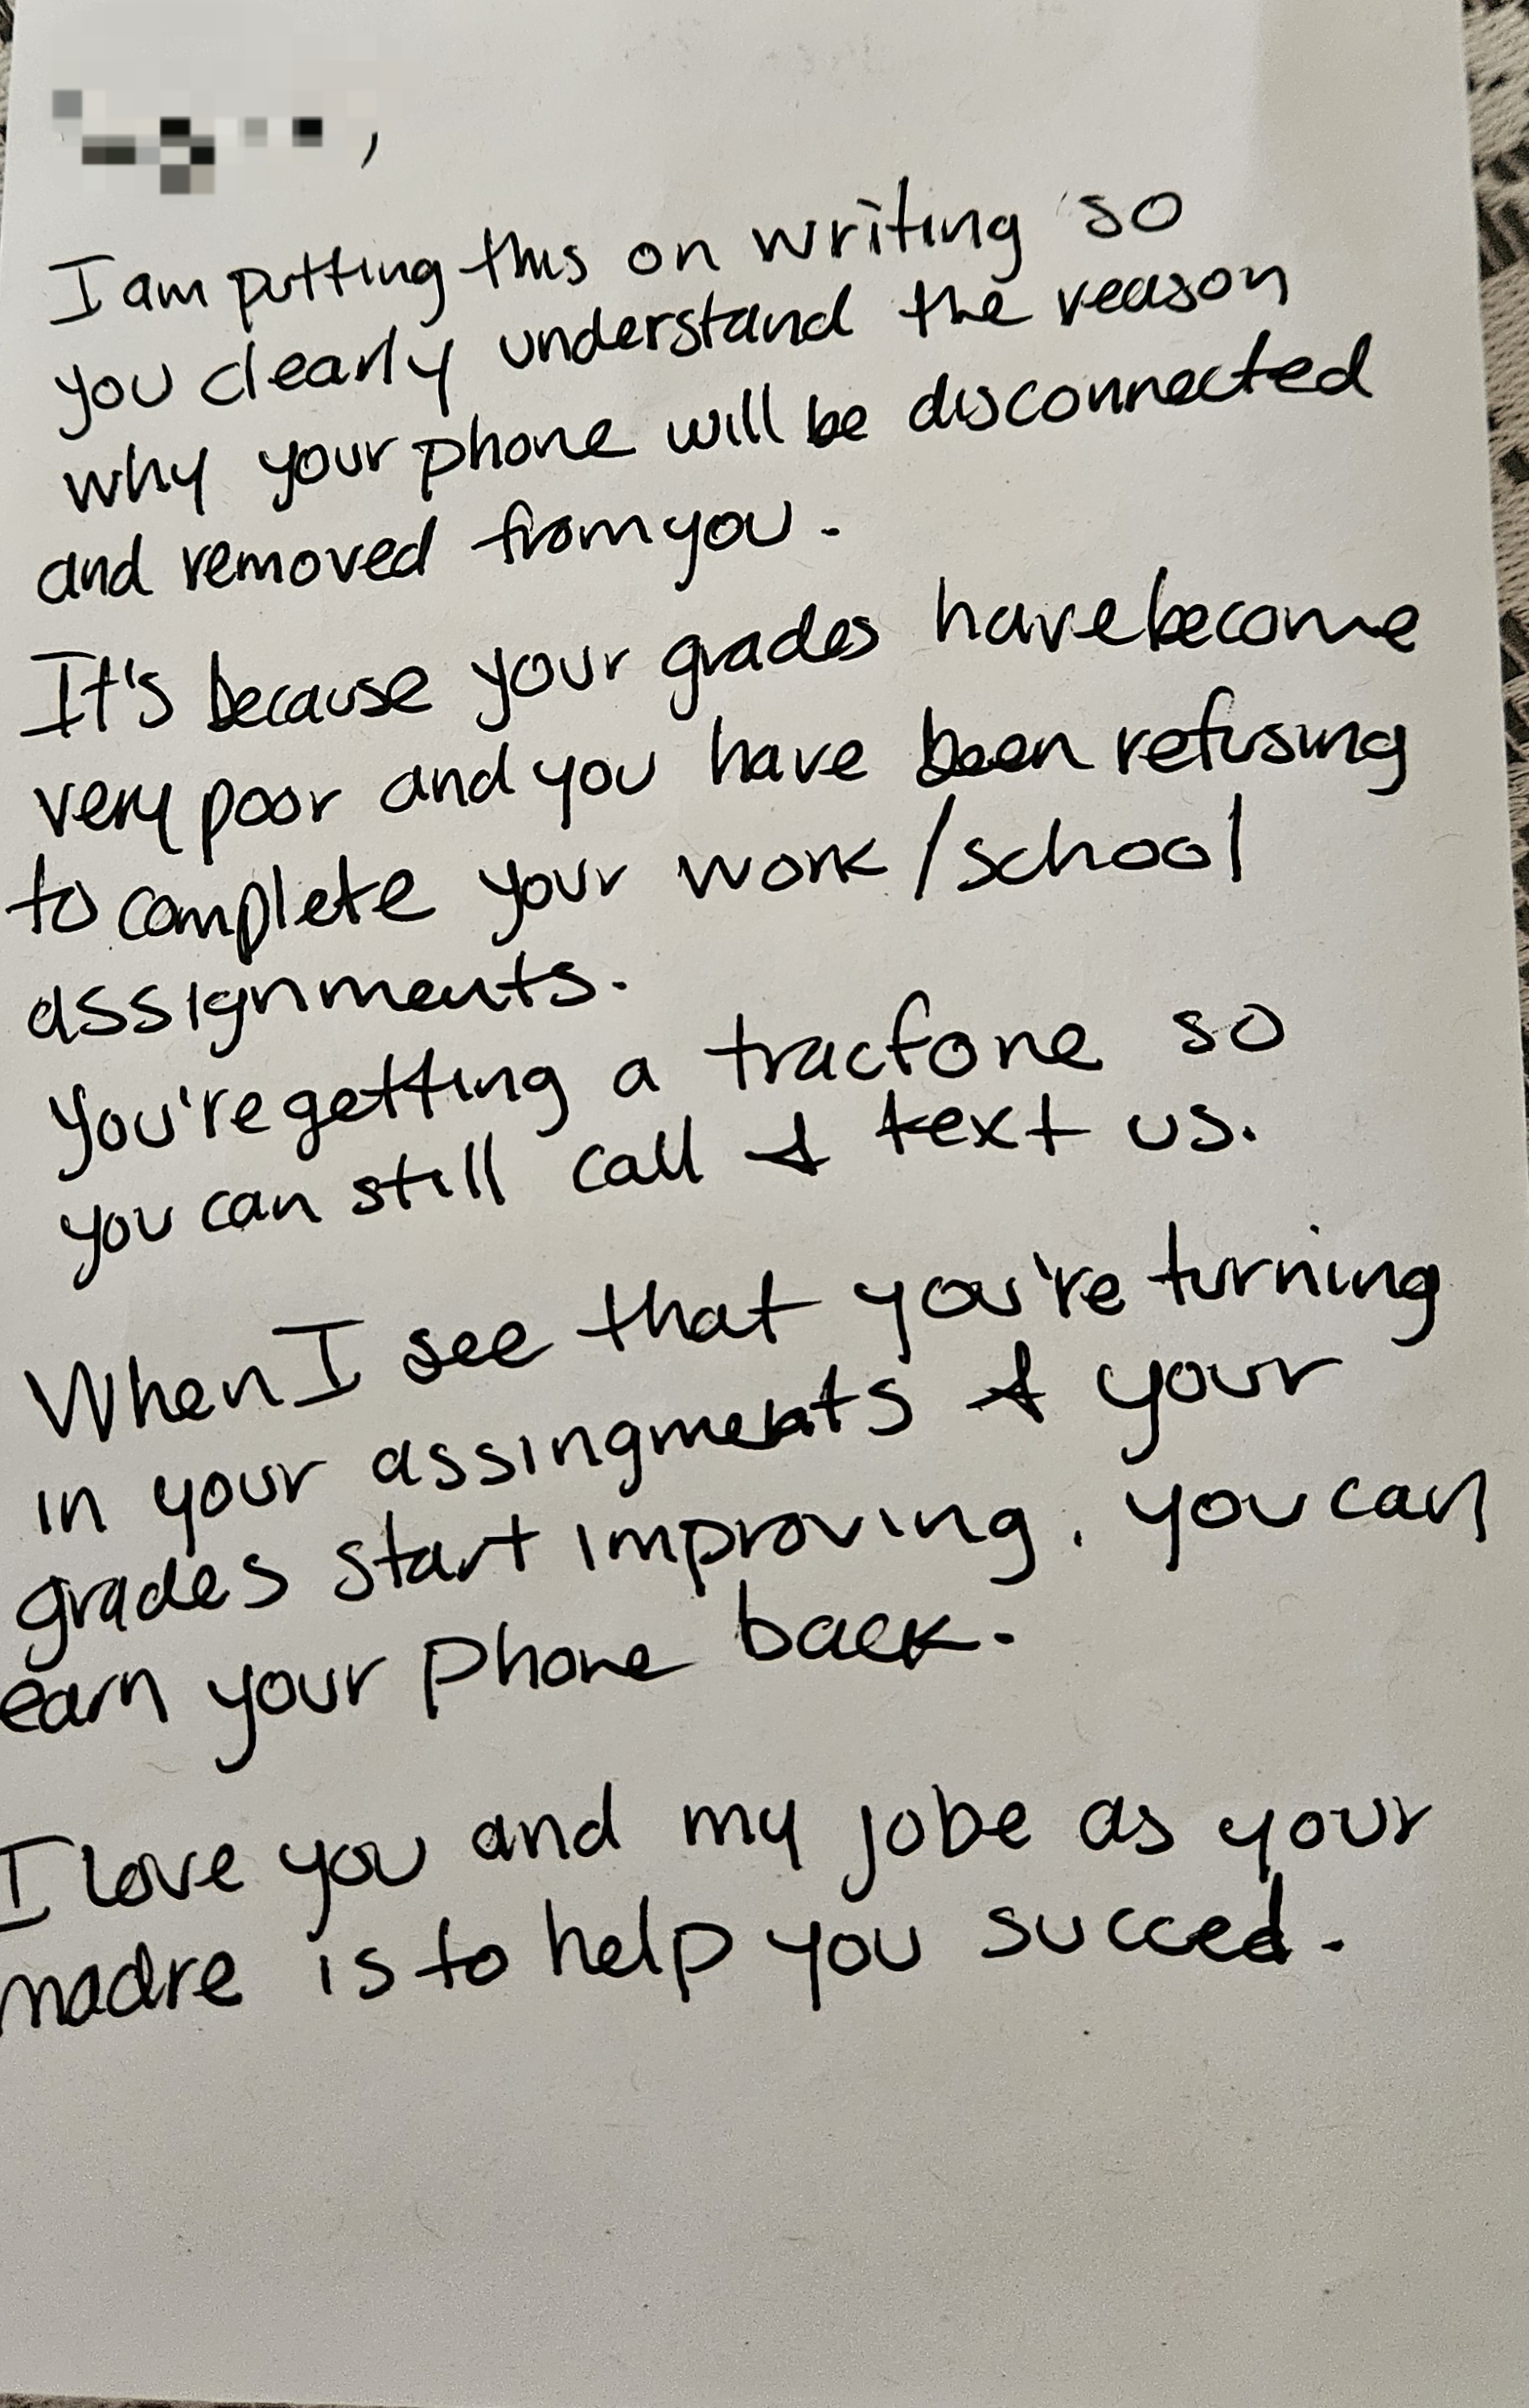 ,
I am putting this on writing so
you clearly understand the reason
why your phone will be disconnected
and removed from you.
It's because your grades have become
very poor and you have been refusing
to complete your work/school
assignments.
You're getting a tracfone so
you can still call & text us.
When I see that you're turning
in your assingments & your
grades start improving, you can
earn your phone back.
I love you and my jobe as your
madre is to help you succed.